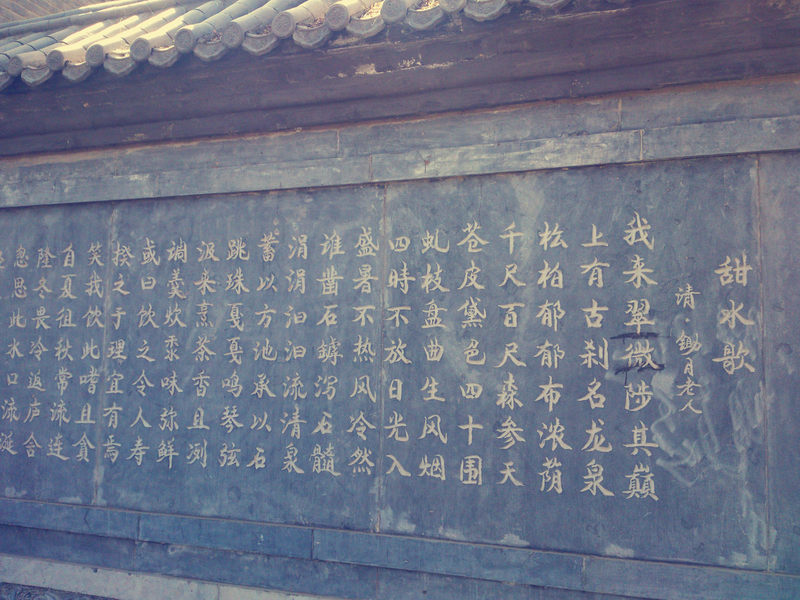 甜水歌
清·锄月老人
我来翠微陟其巅
上有古刹名龙泉
松柏郁郁布浓荫
千尺百尺森参天
苍皮黛色四十围
虬枝盘曲生风烟
四時不放日光入
盛暑不热风冷然
谁凿石罅泻石髓
涓涓汩汩流清泉
蓄以方池承以石
跳珠戛戛鸣琴弦
汲来烹茶香且冽
调羹炊黍味弥鲜
或曰饮之令人寿
揆之于理宜有焉
笑我饮此嗜且贪
自夏徂秋常流连
隆冬畏冷返声合
忽思此水口流涎